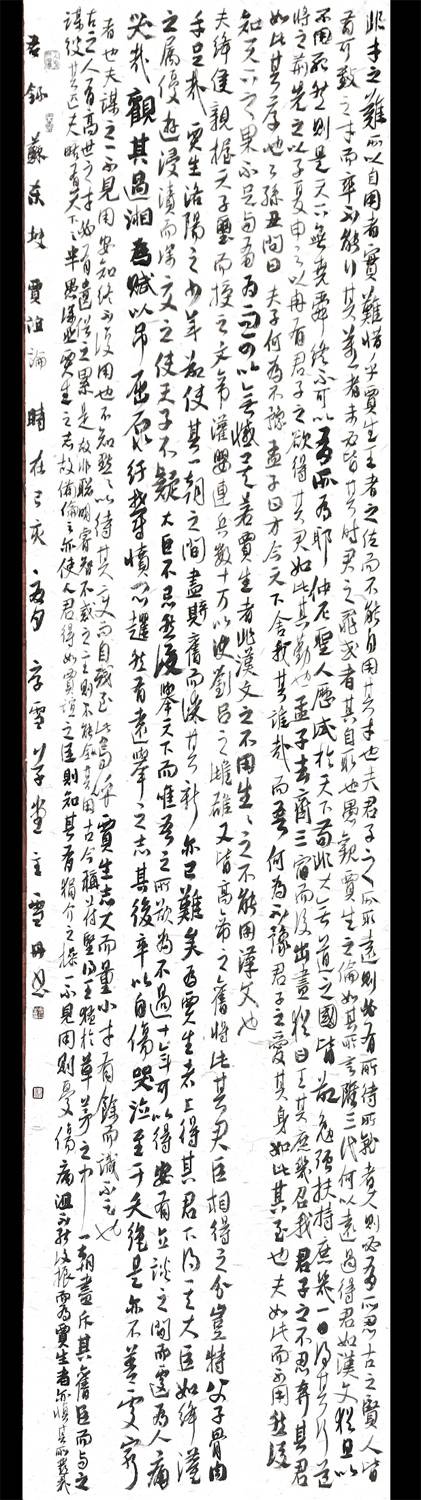 非才之難所以自用者實難惜乎賈生王者之佐而不能自用其才也夫君子之所取遠則必有所待所就者大則必有所忍古之賢人皆
有可致之才而卒不能行其萬一者未必皆其時君之罪或者其自取也愚觀賈生之論如其所言雖三代何以遠過得君如漢文猶且以
不用死然則是天下無堯舜終不可以有所為耶仲尼聖人歷試於天下苟非大無道之國皆欲勉強扶持庶幾一日得其行道
將之荊先之以子夏申之以冉有君子之欲得其君如此其勤也孟子去齊三宿而後出晝猶曰王其庶幾召我君子之不忍棄其君
如此其厚也公孫丑問曰夫子何為不豫孟子曰方今天下舍我其誰哉而吾何為不豫君子之愛其身如此其至也夫如此而不用然後
知天下之果不足與有為而可以無憾矣若賈生者非漢文之不用生生之不能用漢文也
夫絳侯親握天子璽而授之文帝灌嬰連兵數十萬以決劉呂之雌雄又皆高帝之舊將此其君臣相得之分豈特父子骨肉
手足哉賈生洛陽之少年欲使其一朝之間盡棄舊而謀其新亦已難矣為賈生者上得其君下得其大臣如絳灌
之屬優游浸漬而深交之使天子不疑大臣不忌然後舉天下而唯吾之所欲為不過十年可以得志安有立談之間而遽為人痛
哭哉觀其過湘為賦以吊屈原紆鬱憤悶趯然有遠舉之志其後卒以自傷哭泣至于夭絕是亦不善處窮
者也夫謀之一不見用安知終不復用也不知默默以待其變而自殘至此嗚呼賈生志大而量小才有餘而識不足也
古之人有高世之才必有遺俗之累是故非聰明睿智不惑之主則不能全其用古今稱苻堅得王猛於草茅之中一朝盡斥其舊臣而與之
謀彼其匹夫略有天下之半愚深悲賈生之志故備論之亦使人君得如賈誼之臣則知其有狷介之操一不見用則憂傷病沮不能復振而為賈生者亦慎其所發哉
右錄蘇東坡賈誼論時在己亥夏月雪草堂主雪丹書